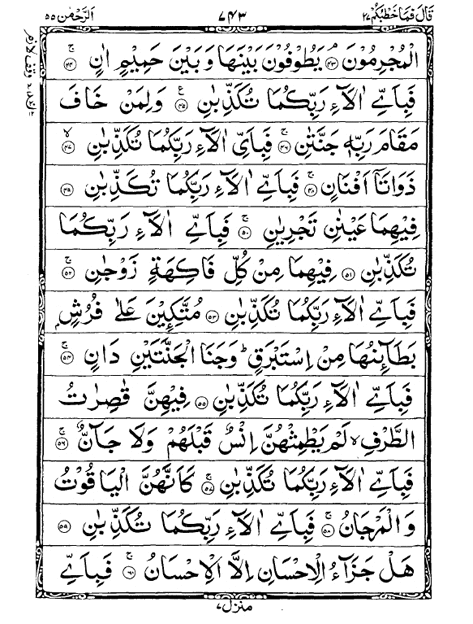 قَالَ فَمَا خَطْبُكُمْ ٢٧
٧٤٣
اَلرَّحْمٰن ٥٥
الْمُجْرِمُوْنَ ۘ﴿۴۳﴾ يَطُوْفُوْنَ بَيْنَهَا وَ بَيْنَ حَمِيْمٍ اٰنٍ ۚ﴿۴۴﴾
فَبِاَيِّ اٰلَآءِ رَبِّكُمَا تُكَذِّبٰنِ ﴿۴۵﴾ وَلِمَنْ خَافَ
مَقَامَ رَبِّهٖ جَنَّتٰنِ ۚ﴿۴۶﴾ فَبِاَيِّ اٰلَآءِ رَبِّكُمَا تُكَذِّبٰنِ ۙ﴿۴۷﴾
ذَوَاتَاۤ اَفْنَانٍ ۚ﴿۴۸﴾ فَبِاَيِّ اٰلَآءِ رَبِّكُمَا تُكَذِّبٰنِ ﴿۴۹﴾
فِيْهِمَا عَيْنٰنِ تَجْرِيٰنِ ۚ﴿۵۰﴾ فَبِاَيِّ اٰلَآءِ رَبِّكُمَا
تُكَذِّبٰنِ ﴿۵۱﴾ فِيْهِمَا مِنْ كُلِّ فَاكِهَةٍ زَوْجٰنِ ۚ﴿۵۲﴾
فَبِاَيِّ اٰلَآءِ رَبِّكُمَا تُكَذِّبٰنِ ﴿۵۳﴾ مُتَّكِـِٕيْنَ عَلٰى فُرُشٍۭ
بَطَآىِٕنُهَا مِنْ اِسْتَبْرَقٍ ؕ وَجَنَا الْجَنَّتَيْنِ دَانٍ ۚ﴿۵۴﴾
فَبِاَيِّ اٰلَآءِ رَبِّكُمَا تُكَذِّبٰنِ ﴿۵۵﴾ فِيْهِنَّ قٰصِرٰتُ
الطَّرْفِ ۙ لَمْ يَطْمِثْهُنَّ اِنْسٌ قَبْلَهُمْ وَلَا جَآنٌّ ۚ﴿۵۶﴾
فَبِاَيِّ اٰلَآءِ رَبِّكُمَا تُكَذِّبٰنِ ۚ﴿۵۷﴾ كَاَنَّهُنَّ الْيَاقُوْتُ
وَالْمَرْجَانُ ۚ﴿۵۸﴾ فَبِاَيِّ اٰلَآءِ رَبِّكُمَا تُكَذِّبٰنِ ﴿۵۹﴾
هَلْ جَزَآءُ الْاِحْسَانِ اِلَّا الْاِحْسَانُ ۚ﴿۶۰﴾ فَبِاَيِّ
منزل ٧